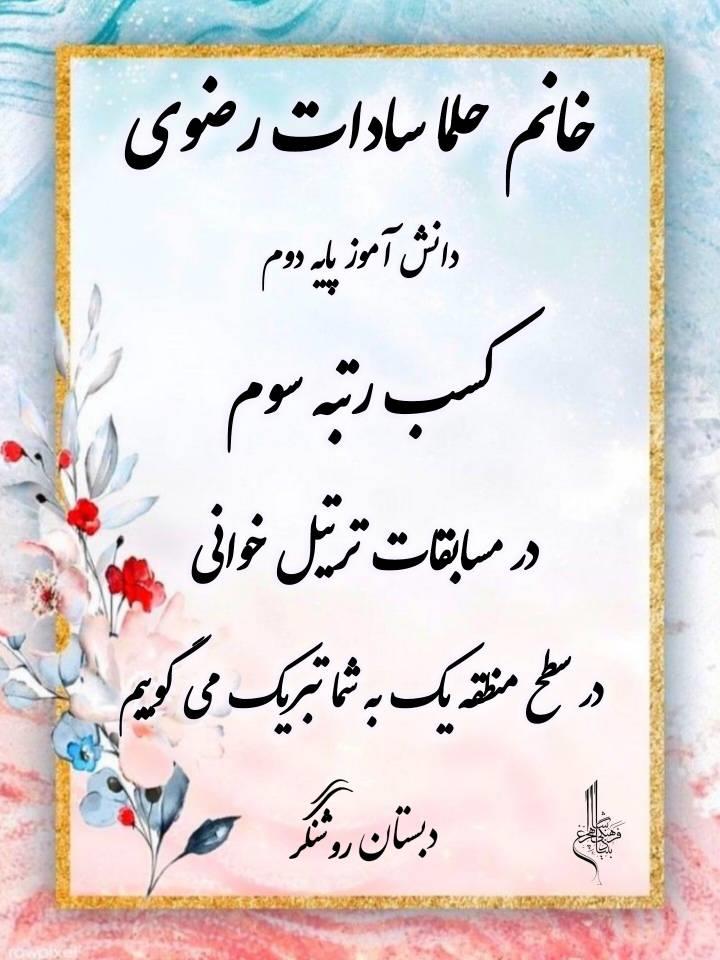 خانم حلما سادات رضوی
دانش آموز پایه دوم
کسب رتبه سوم
در مسابقات ترتیل خوانی
در سطح منطقه یک به شما تبریک می گوییم
دبستان روشنگر
rawpixel